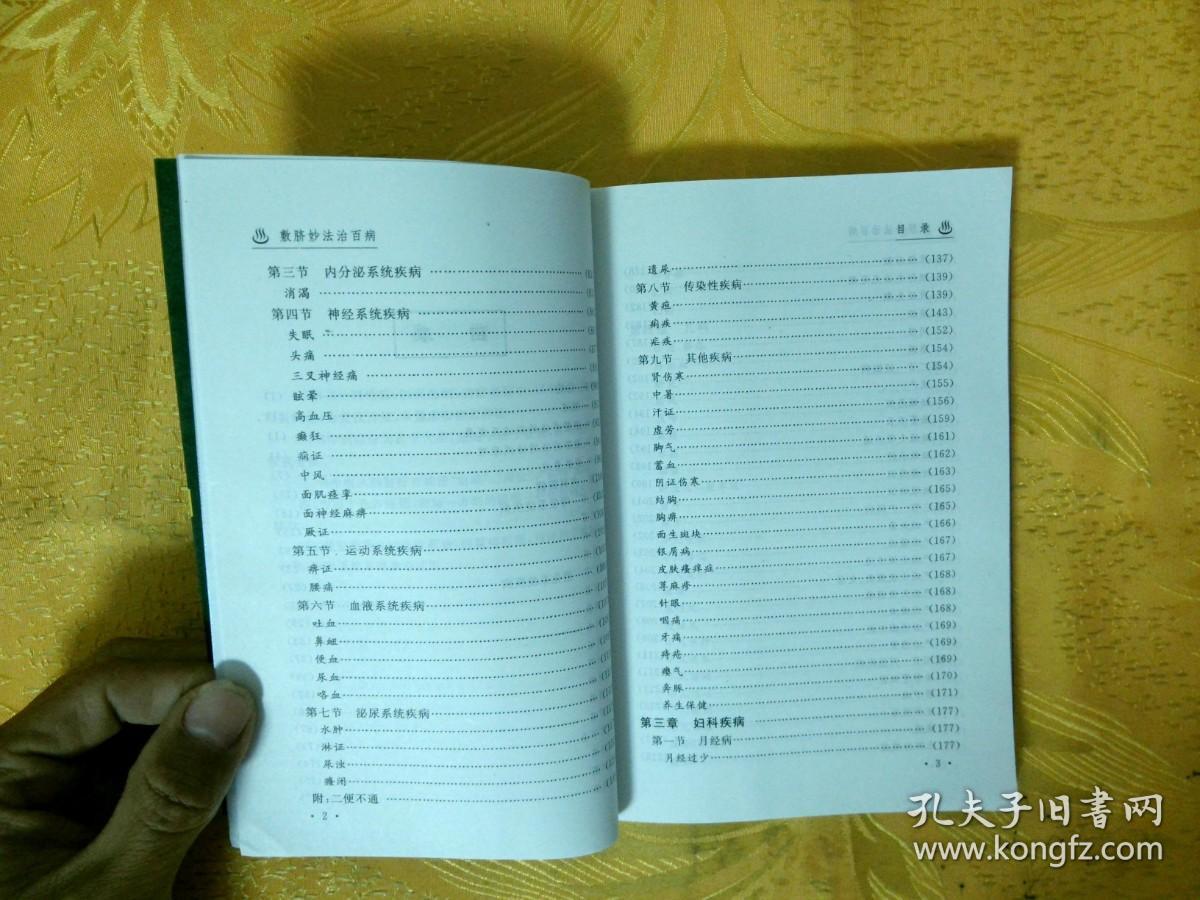 敷脐妙法治百病
第三节 内分泌系统疾病
消渴
第四节 神经系统疾病
失眠
头痛
三叉神经痛
眩晕
高血压
癫狂
痫证
中风
面肌痉挛
面神经麻痹
厥证
第五节 运动系统疾病
痹证
腰痛
第六节 血液系统疾病
吐血
鼻衄
便血
尿血
咯血
第七节 泌尿系统疾病
水肿
淋证
尿浊
癃闭
附:二便不通
· 2 ·
目录
遗尿 (137)
第八节 传染性疾病 (139)
黄疸 (139)
痢疾 (143)
疟疾 (152)
第九节 其他疾病 (154)
肾伤寒 (154)
中暑 (155)
汗证 (156)
虚劳 (159)
胸气 (161)
蓄血 (162)
阴证伤寒 (163)
结胸 (165)
胸痹 (165)
面生斑块 (166)
银屑病 (167)
皮肤瘙痒症 (167)
荨麻疹 (168)
针眼 (168)
咽痛 (169)
牙痛 (169)
痔疮 (169)
瘿气 (170)
奔豚 (171)
养生保健 (177)
第三章 妇科疾病 (177)
第一节 月经病 (177)
月经过少
· 3 ·
孔夫子旧书网
www.kongfz.com